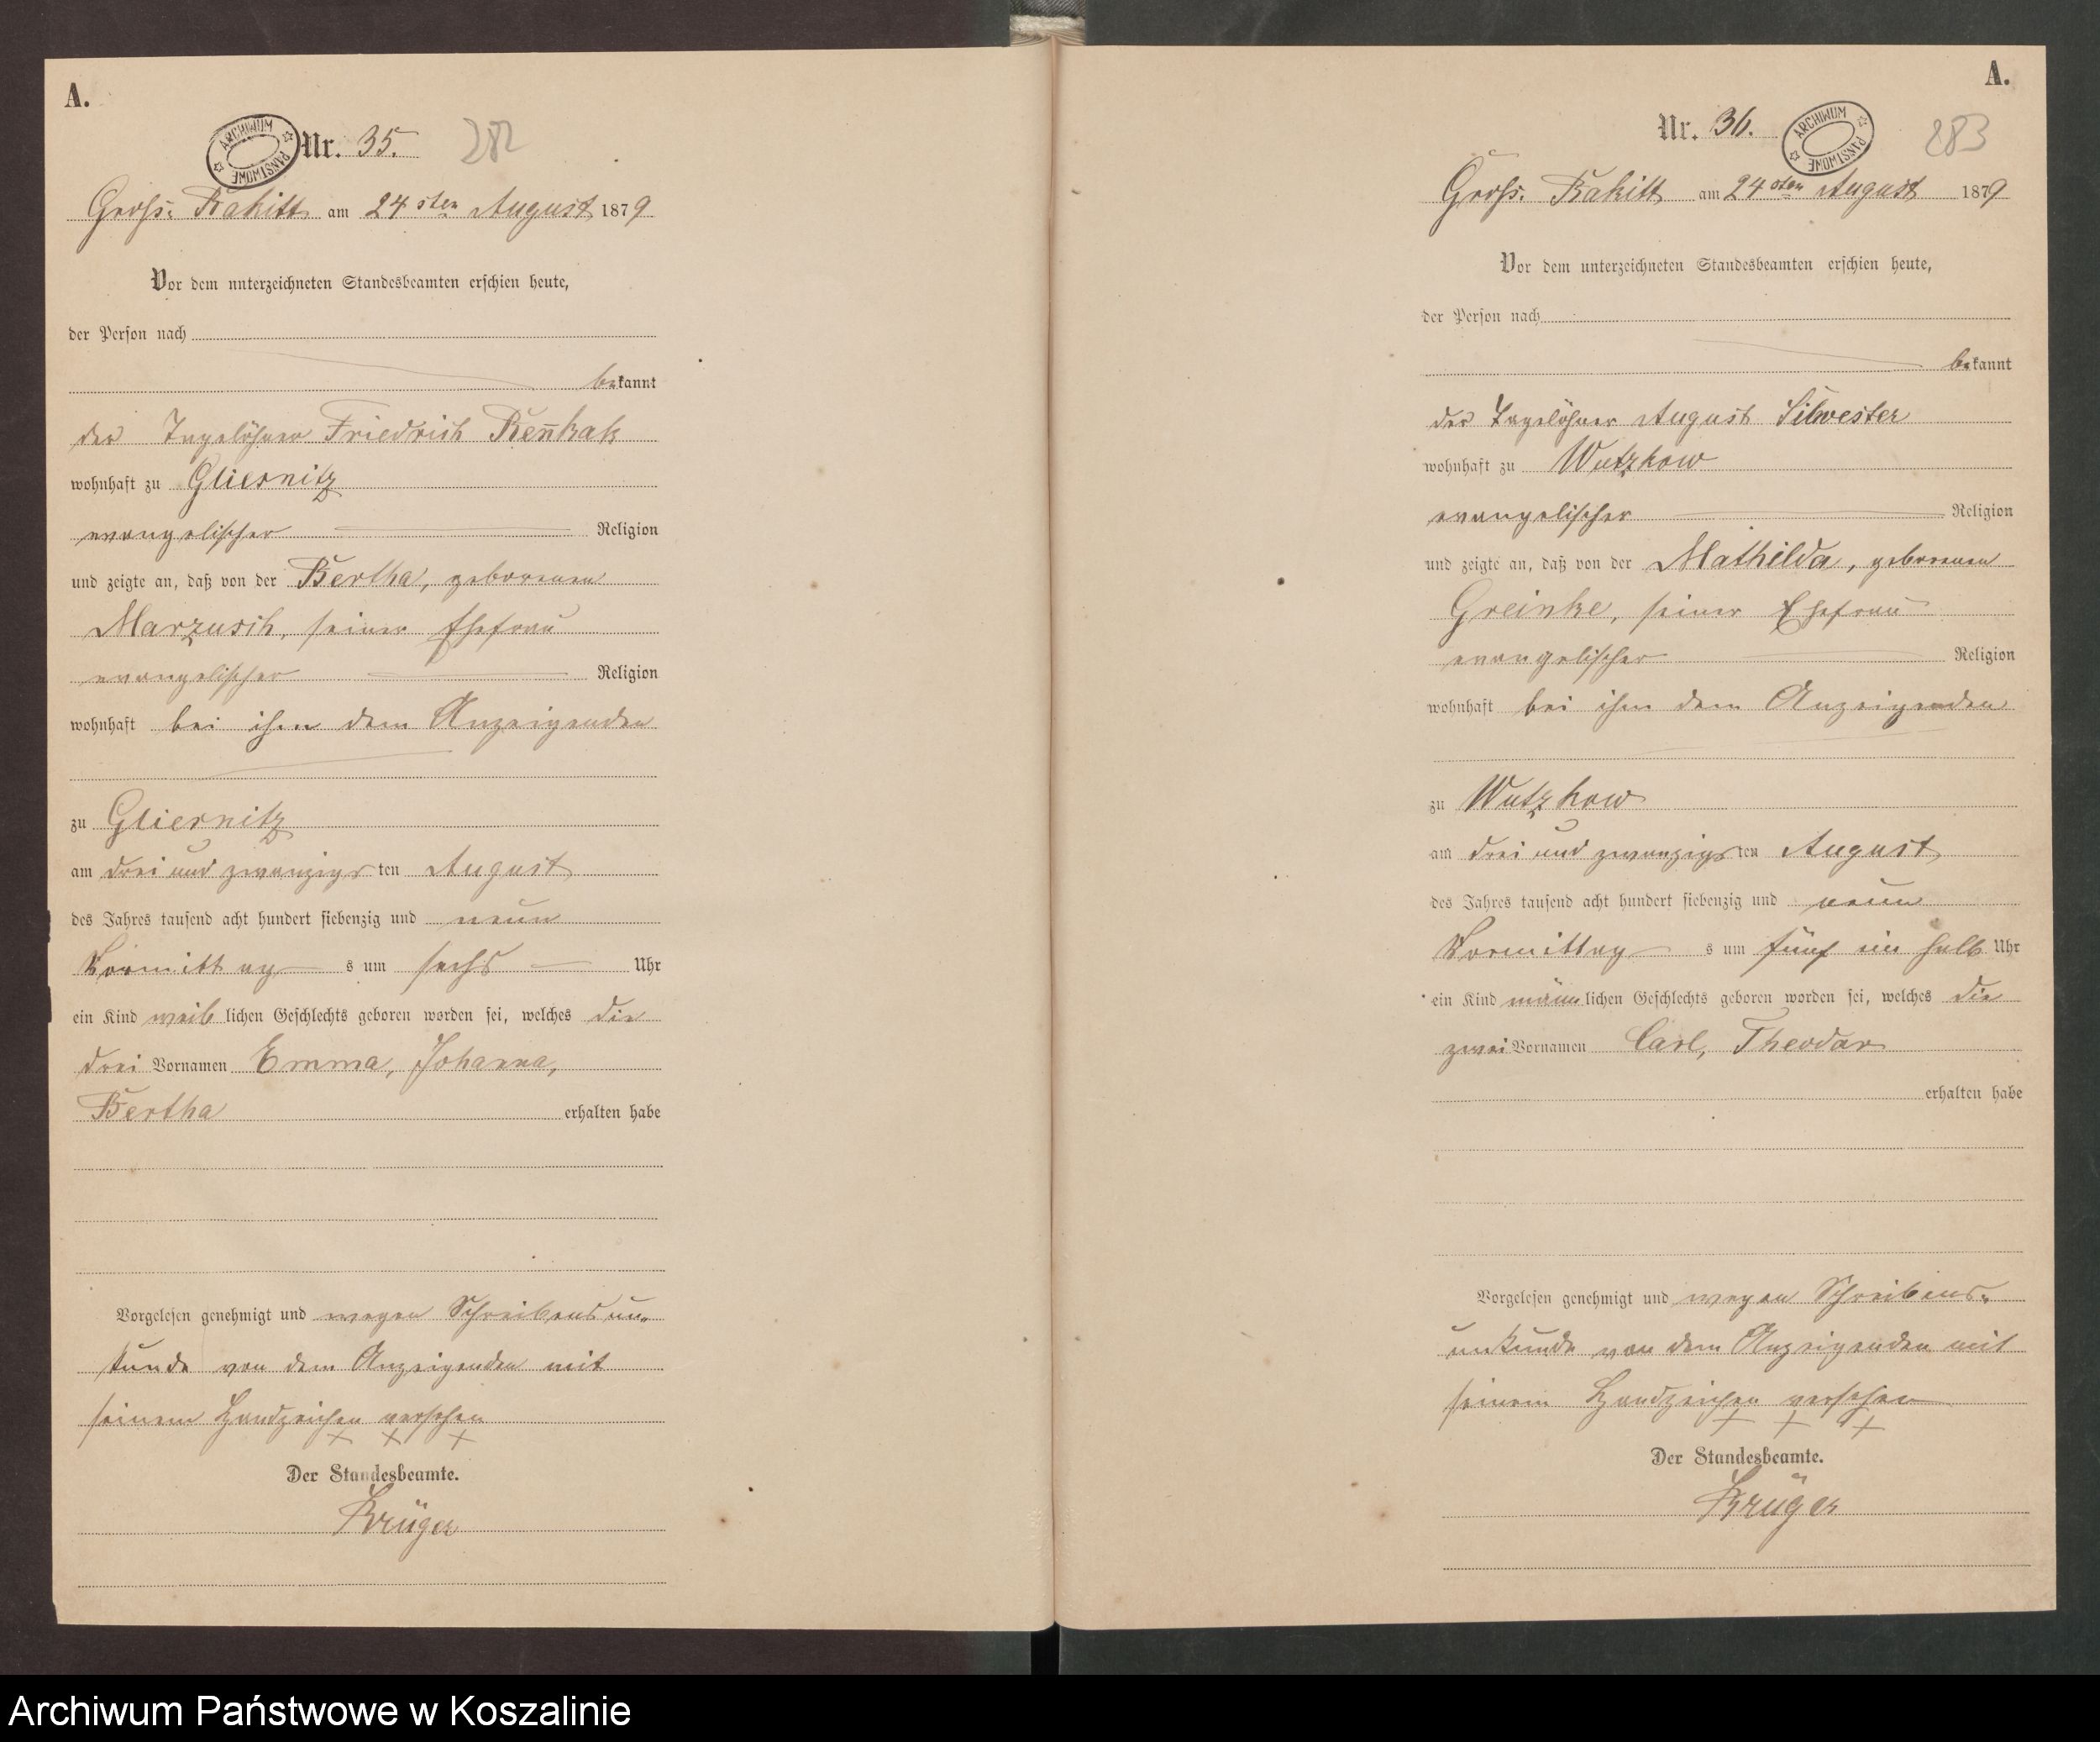 A.
ARCHIWUM PAŃSTWOWE
Nr. 35.
282
Gross: Rakitt am 24sten August 1879
Vor dem unterzeichneten Standesbeamten erschien heute,
der Person nach
bekannt
der Tagelöhner Friedrich
wohnhaft zu Gliesnitz
evangelischer Religion
und zeigte an, daß von der Bertha, geborenen
Marzusch, seiner Ehefrau
evangelischer Religion
wohnhaft bei ihm dem Anzeigenden
zu Gliesnitz
am drei und zwanzigsten August
des Jahres tausend acht hundert siebenzig und neun
Vormittags um sechs Uhr
ein Kind weiblichen Geschlechts geboren worden sei, welches die
drei Vornamen Emma, Johanna,
Bertha erhalten habe
Vorgelesen genehmigt und wegen Schreibensun-
kunde von dem Anzeigenden mit
seinem Handzeichen versehen
+ + +
Der Standesbeamte.
Krüger
A.
Nr. 36.
ARCHIWUM PAŃSTWOWE
283
Gross. Rakitt am 24sten August 1879
Vor dem unterzeichneten Standesbeamten erschien heute,
der Person nach
bekannt
der Tagelöhner August Silwester
wohnhaft zu Wutzkow
evangelischer Religion
und zeigte an, daß von der Mathilda, geborenen
Greinke, seiner Ehefrau
evangelischer Religion
wohnhaft bei ihm dem Anzeigenden
zu Wutzkow
am drei und zwanzigsten August
des Jahres tausend acht hundert siebenzig und neun
Vormittags um fünf ein halb Uhr
ein Kind männlichen Geschlechts geboren worden sei, welches die
zwei Vornamen Carl, Theodor
erhalten habe
Vorgelesen genehmigt und wegen Schreibens-
unkunde von dem Anzeigenden mit
seinem Handzeichen versehen
+ + +
Der Standesbeamte.
Krüger
Archiwum Państwowe w Koszalinie